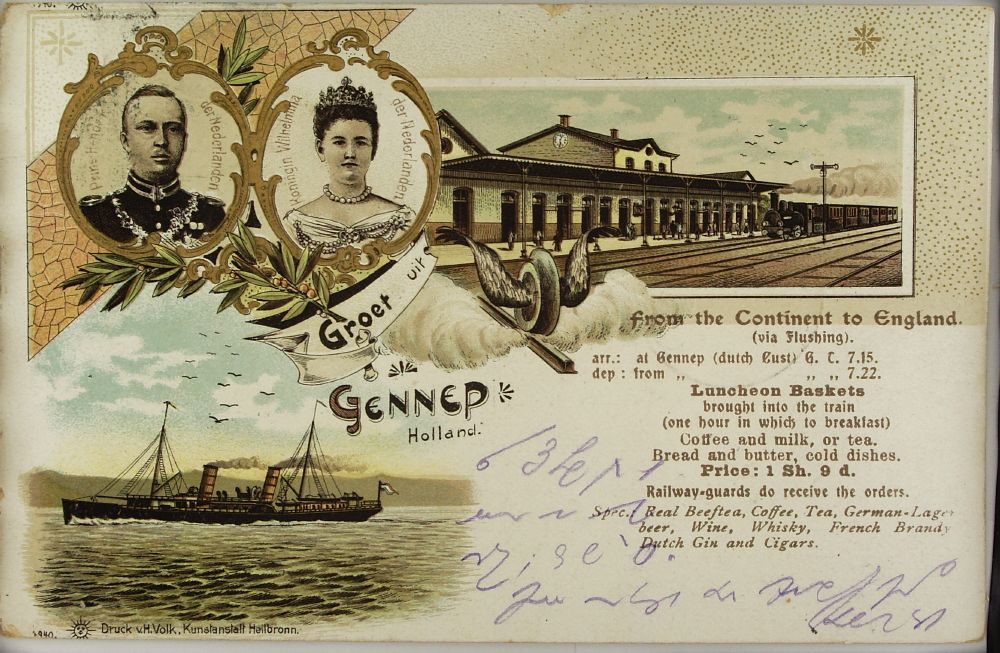 Prinz Hendrik
der Nederlanden
Koningin Wilhelmina
der Nederlanden
Groet uit
GENNEP
Holland.
From the Continent to England.
(via Flushing).
arr.: at Gennep (dutch Cust) G. T. 7.15.
dep: from „ „ „ 7.22.
Luncheon Baskets
brought into the train
(one hour in which to breakfast)
Coffee and milk, or tea.
Bread and butter, cold dishes.
Price: 1 Sh. 9 d.
Railway-guards do receive the orders.
Spec.: Real Beeftea, Coffee, Tea, German-Lager
beer, Wine, Whisky, French Brandy
Dutch Gin and Cigars.
Druck v.H.Volk, Kunstanstalt Heilbronn.